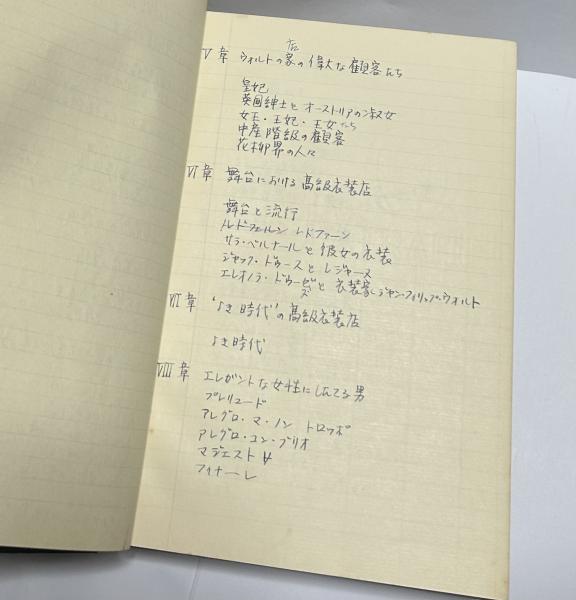 V章 ウォルトの家の偉大な顧客たち
店
皇妃
英国紳士とオーストリアの淑女
女王・王妃・王女たち
中産階級の顧客
花柳界の人々
VI章 舞台における高級衣装店
舞台と流行
ルドフェルン レドファーン
サラ・ベルナールと彼女の衣装
ジャック・ドゥースとレジャーヌ
エレオノラ・ドゥーゼと衣装家ジャン・フィリップ・ウォルト
ズ
VII章 "よき時代"の高級衣装店
よき時代
VIII章 エレガントな女性にしたてる男
プレリュード
アレグロ・マ・ノン トロッポ
アレグロ・コン・ブリオ
マジェスト
フィナーレ